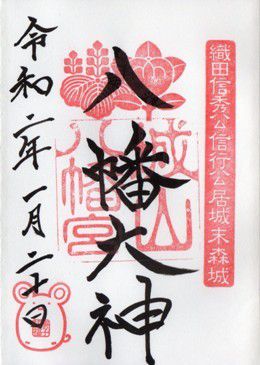 織田信秀公信行公居城末森城
八幡大神
城山
八幡宮
令和二年一月二十日